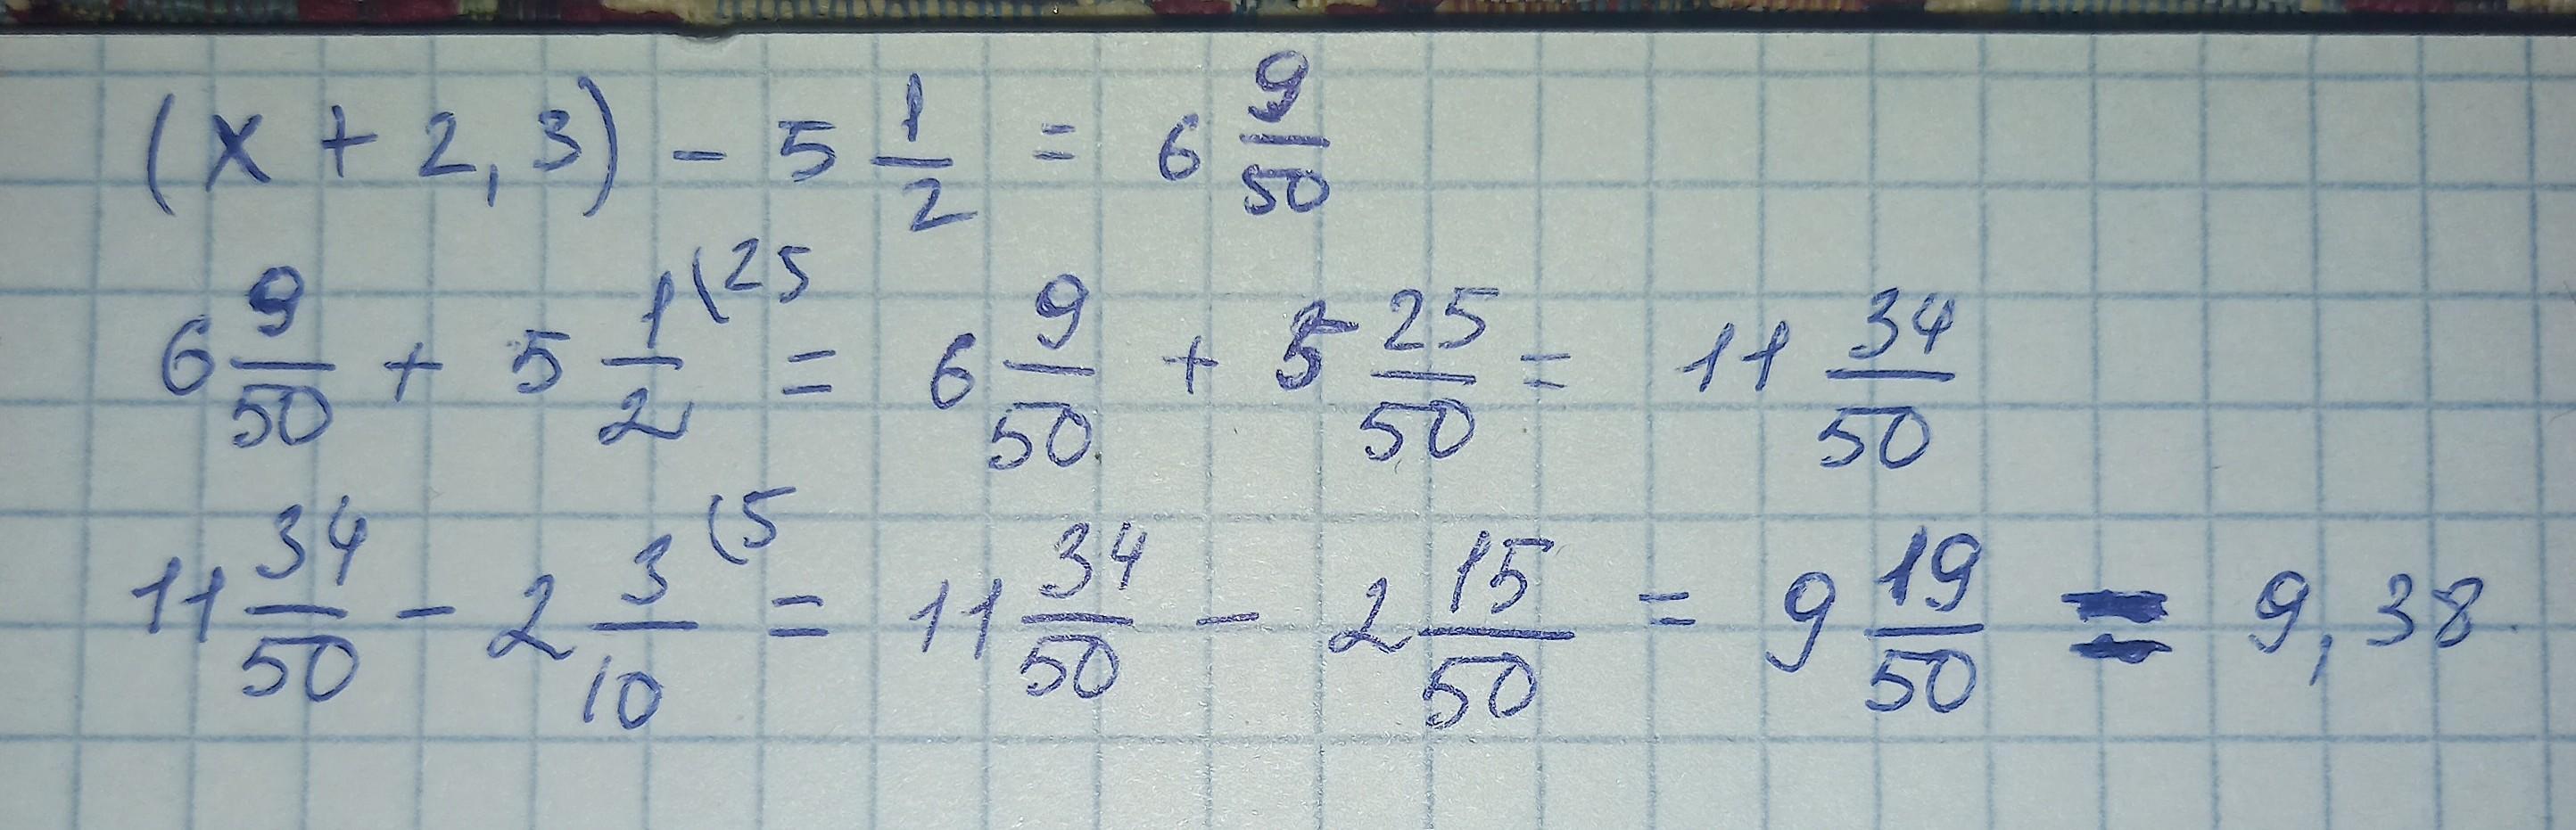 (x + 2,3) - 5 1/2 = 6 9/50
6 9/50 + 5 1/2 (25 = 6 9/50 + 5 25/50 = 11 34/50
11 34/50 - 2 3/10 (5 = 11 34/50 - 2 15/50 = 9 19/50 = 9,38